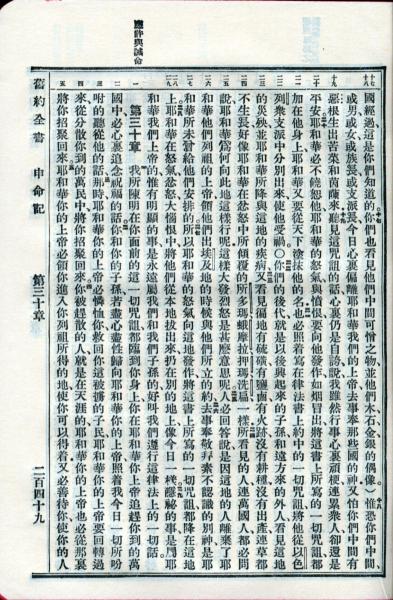 國經過這是你們知道的你們也看見他們中間可憎之物並他們木石金銀的偶像)惟恐你們中間、
或男或女或族長或支派長今日心裏偏離耶和華我們的上帝去事奉那些國的神又怕你們中間有
惡根生出苦菜和茵蔯來聽見這咒詛的話心裏仍是自誇說我雖然行事心裏頑梗連累衆人卻還是
平安耶和華必不饒恕他耶和華的怒氣與憤恨要向他發作如烟冒出將這書上所寫的一切咒詛都
加在他身上耶和華又要從天下塗抹他的名也必照着寫在律法書上約中的一切咒詛將他從以色
列衆支派中分別出來使他受禍〇你們的後代就是以後興起來的子孫和遠方來的外人看見這地
的災殃並耶和華所降與這地的疾病又看見徧地有硫磺有鹽鹵有火跡沒有耕種沒有出產連草都
不生長好像耶和華在忿怒中所傾覆的所多瑪蛾摩拉押瑪洗扁一樣所看見的人連萬國人都必問
說耶和華爲何向此地這樣行呢這樣大發烈怒是甚麽意思呢人必回答說是因這地的人離棄了耶
和華他們列祖的上帝領他們出埃及地的時候與他們所立的約去事奉敬拜素不認識的別神是耶
和華所未曾給他們安排的所以耶和華的怒氣向這地發作將這書上所寫的一切咒詛都降在這地
上耶和華在怒氣忿怒大惱恨中將他們從本地拔出來扔在別的地上像今日一樣隱祕的事是屬耶
和華我們上帝的惟有明顯的事是永遠屬我們和我們子孫的好叫我們遵行這律法上的一切話
應許與誡命
第三十章 一 我所陳明在你面前的這一切咒詛都臨到你身上你在耶和華你上帝追趕你到的萬
二 國中必心裏追念祝福的話你和你的子孫若盡心盡性歸向耶和華你的上帝照着我今日一切所吩
三 咐的聽從他的話那時耶和華你的上帝必憐恤你救回你這被擄的子民耶和華你的上帝要回轉過
四 來從分散你到的萬民中將你招聚回來你被趕散的人就是在天涯的耶和華你的上帝也必從那裏
五 將你招聚回來耶和華你的上帝必領你進入你列祖所得的地使你可以得着又必善待你使你的人
舊約全書 申命記 第三十章 二百四十九